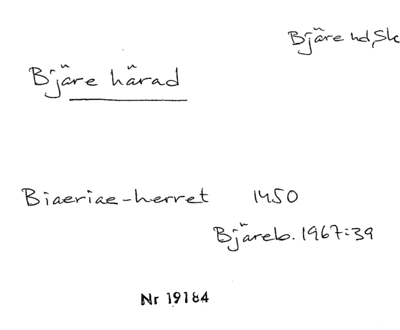 Bjäre hd, Sk
Bjäre härad
Biaeriae-herret 1450
Bjäreb. 1967:39
Nr 19184